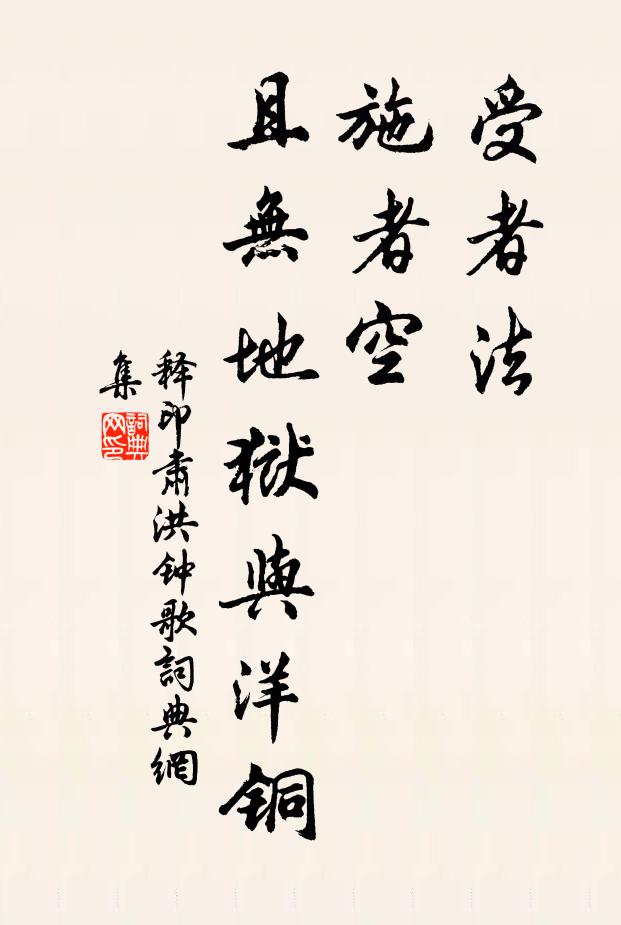 受者法
施者空
且無地獄與洋銅
释印肅洪钟歌詞典網
集
詞典
网印